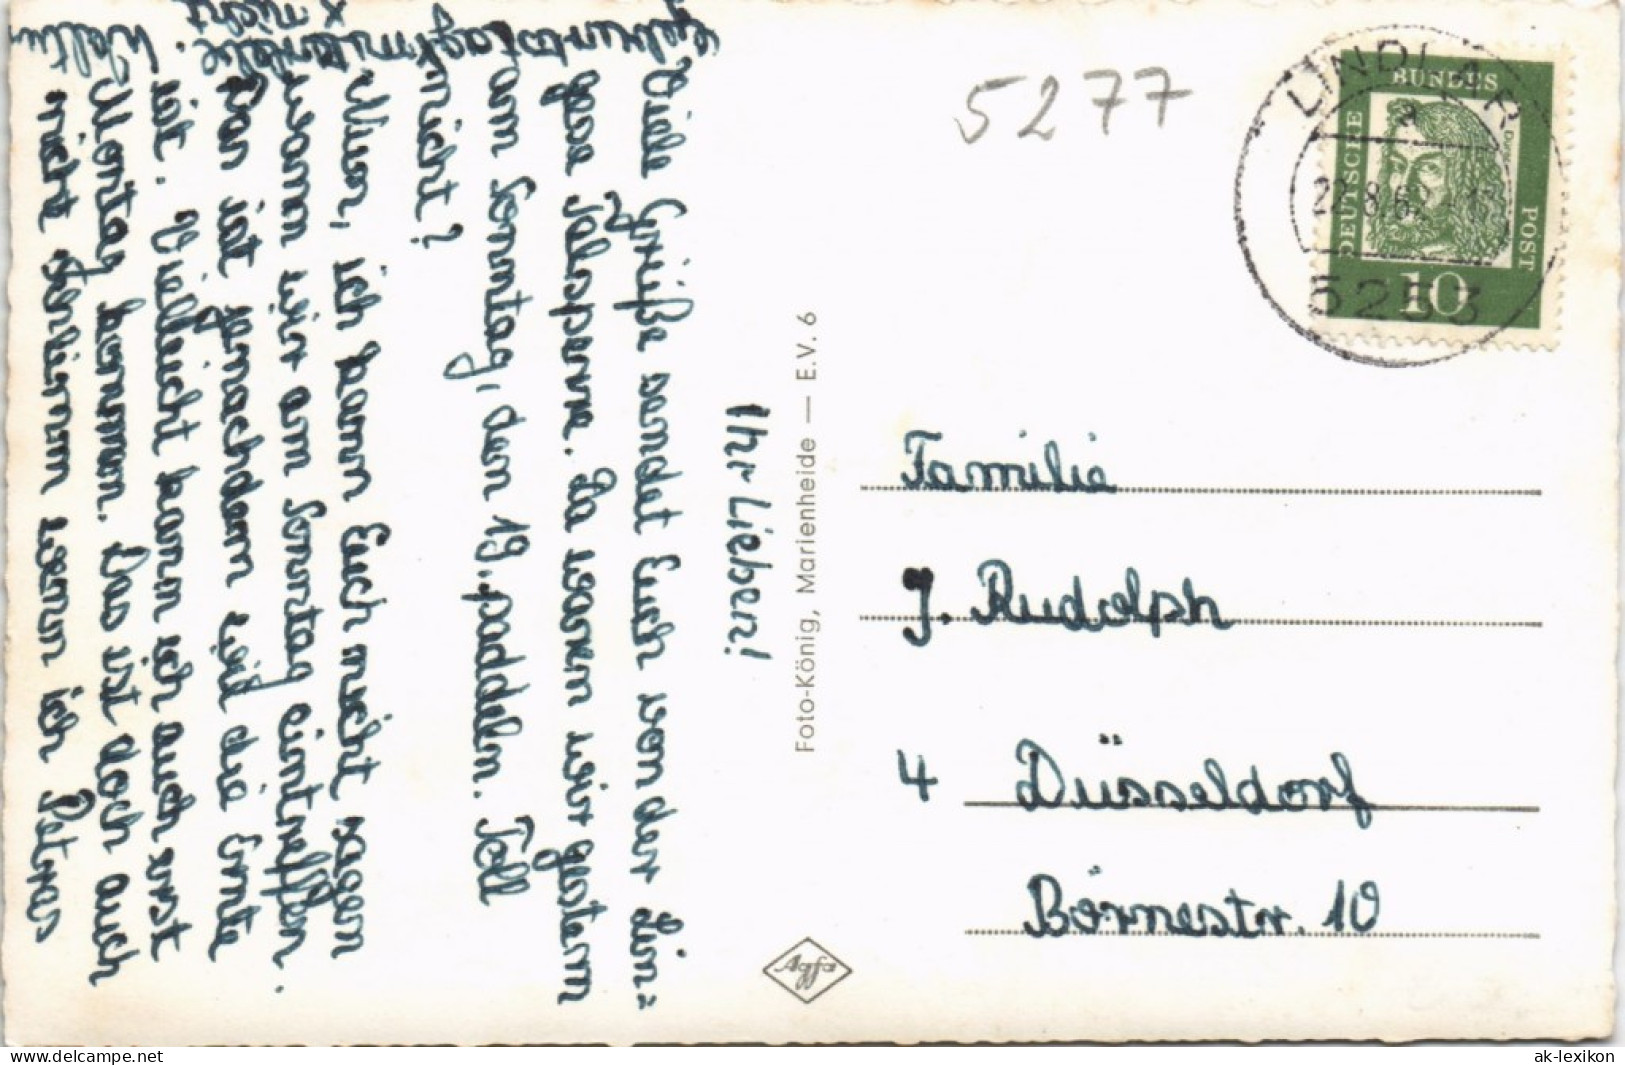 Ihr Lieben!
Viele Grüße sendet Euch von der Lin=
gese Talsperre. Da waren wir gestern
am Sonntag, den 19. paddeln. Toll
nicht?
Nur, ich kann Euch nicht sagen
wann wir am Sonntag eintreffen.
Das ist je nachdem wie die Ernte
ist. Vielleicht kann ich auch erst
Montag kommen. Das ist doch auch
nicht schlimm wenn ich Petras
Geburtstag mitmache.
x nicht
5277
LINDLAR
a
22.8.62
5253
DEUTSCHE
BUNDES
POST
10
Foto-König, Marienheide — E.V. 6
Agfa
Familie
J. Rudolph
4 Düsseldorf
Börnestr. 10
ak-ansichtskarte.de
ak-lexikon